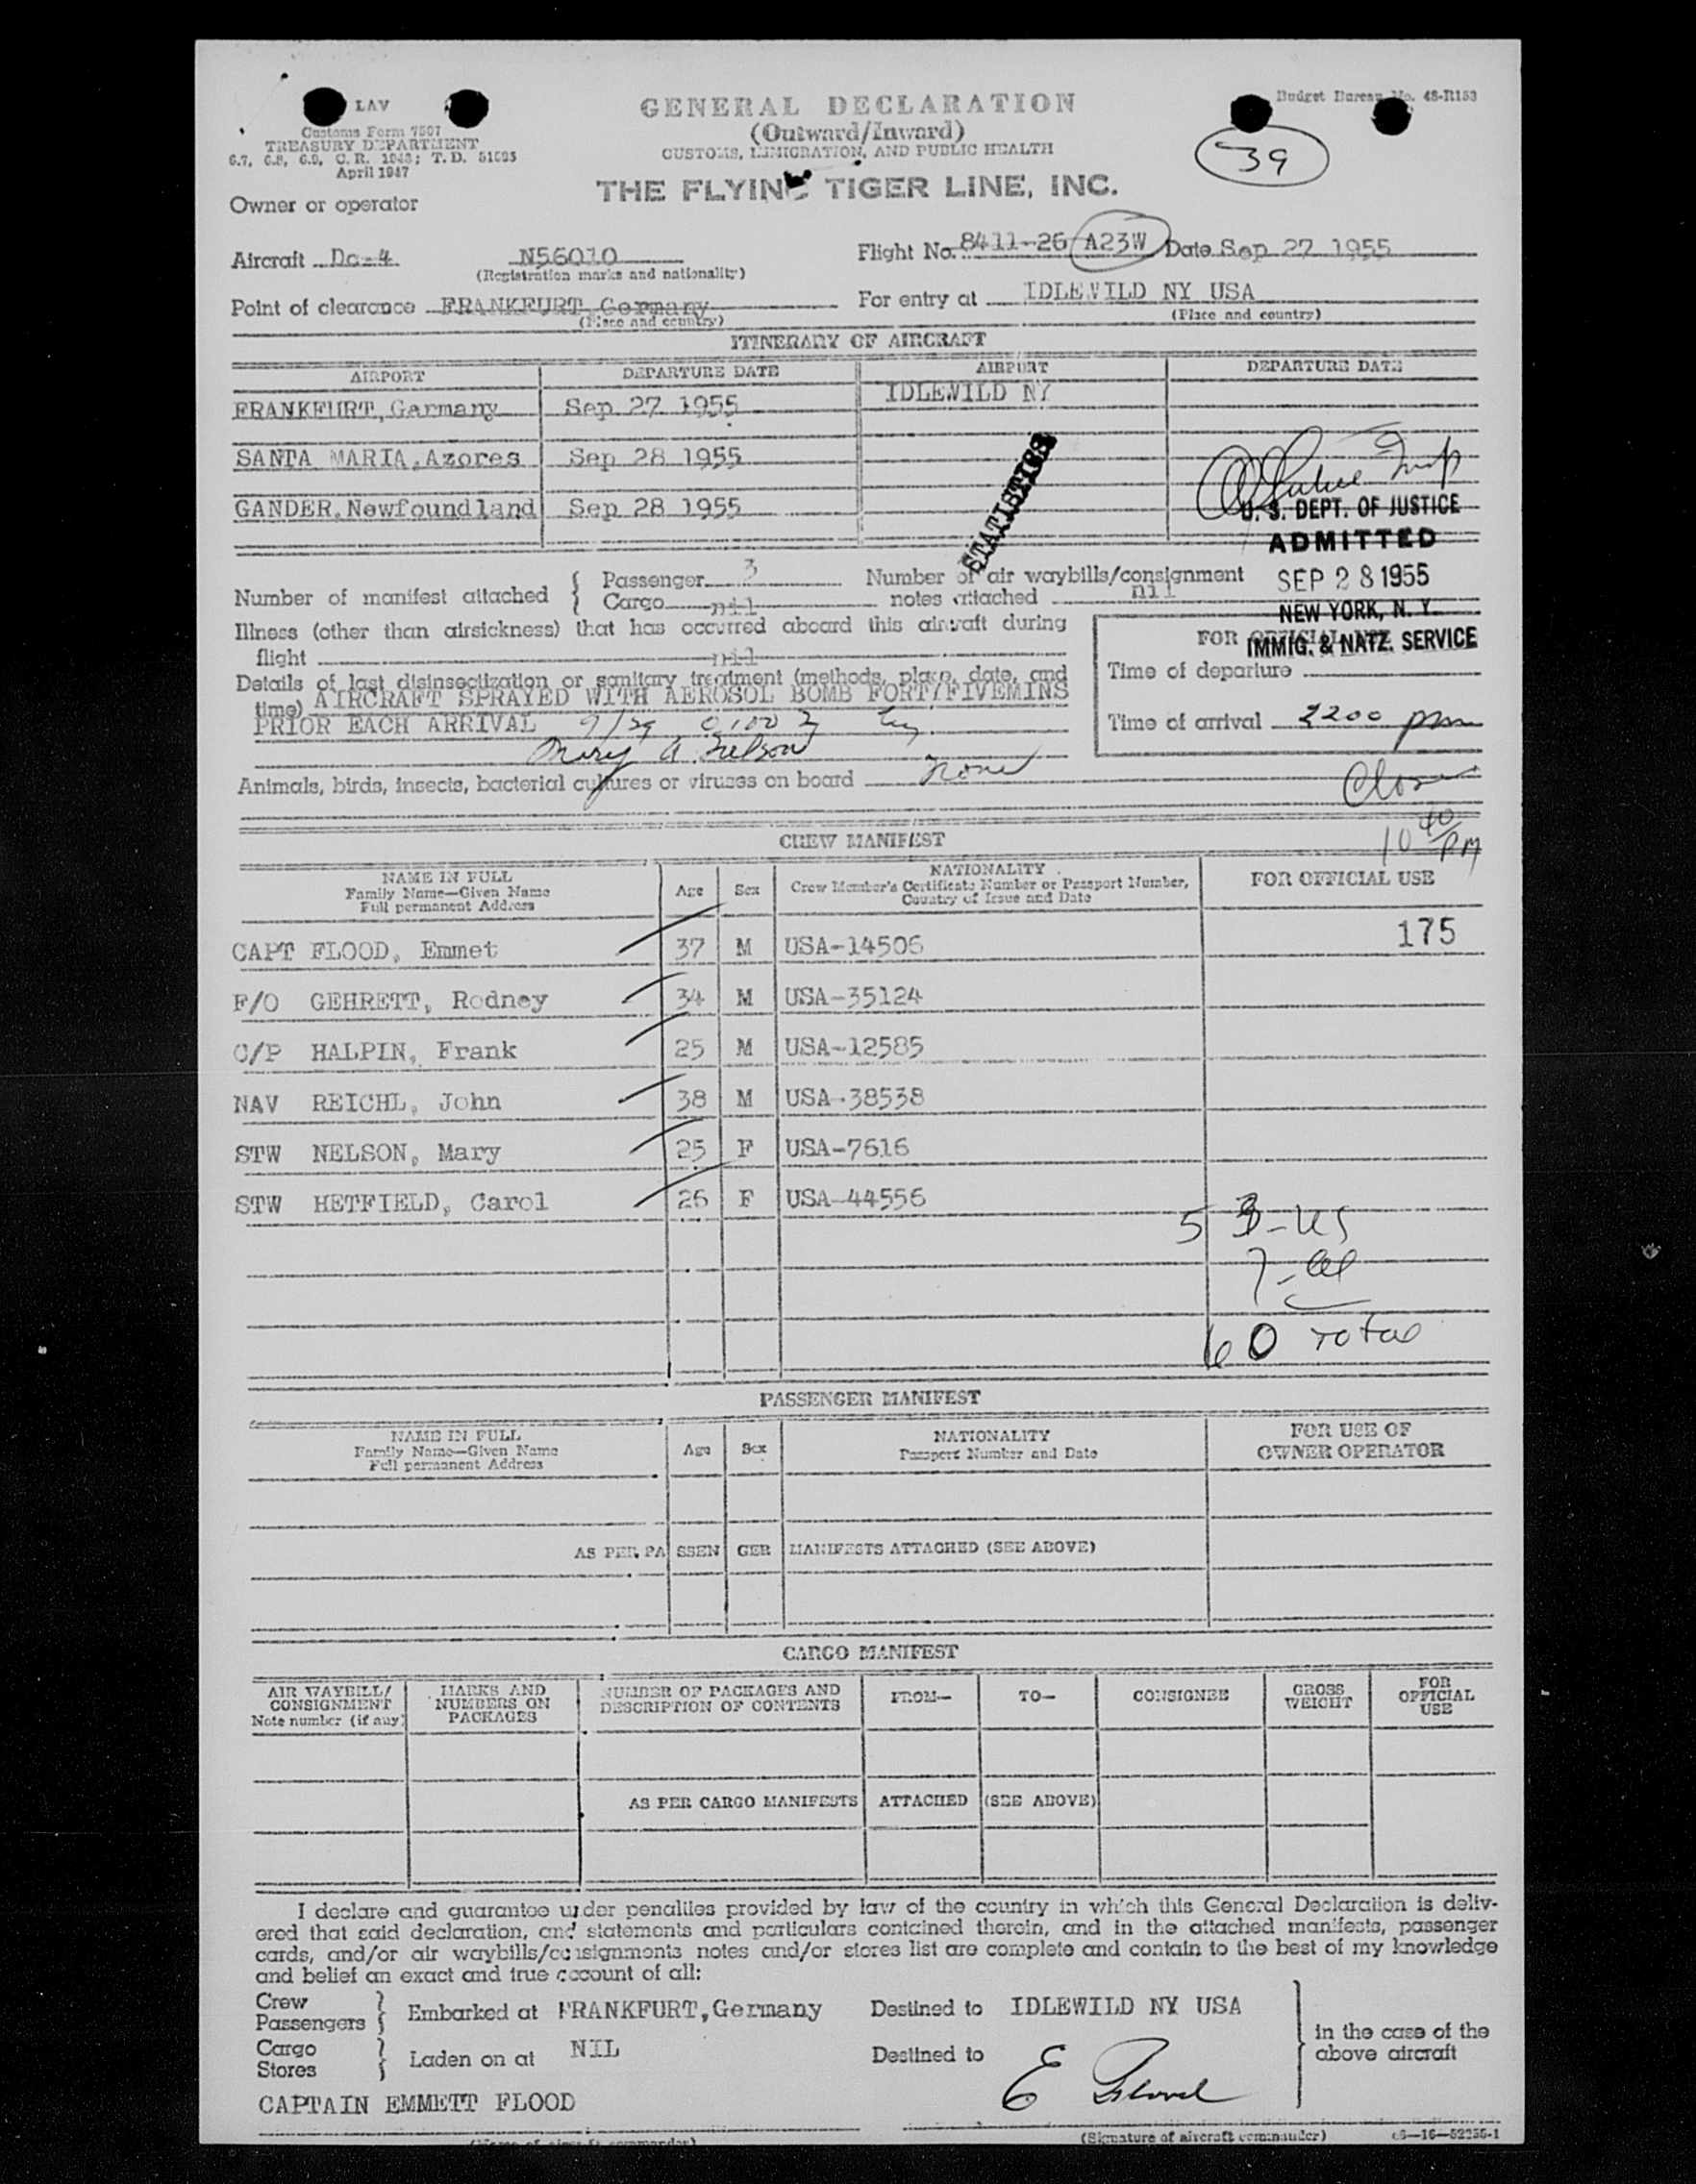 LAV
Customs Form 7507
TREASURY DEPARTMENT
6.7, 6.8, 6.9, C.R. 1943; T.D. 51695
April 1947
GENERAL DECLARATION
(Outward/Inward)
CUSTOMS, IMMIGRATION, AND PUBLIC HEALTH
Budget Bureau No. 48-R153
39
THE FLYING TIGER LINE, INC.
Owner or operator
Aircraft Dc-4 N56010 Flight No. 8411-26 A23W Date Sep 27 1955
(Registration marks and nationality)
Point of clearance FRANKFURT Germany For entry at IDLEWILD NY USA
(Place and country) (Place and country)
ITINERARY OF AIRCRAFT
AIRPORT DEPARTURE DATE AIRPORT DEPARTURE DATE
FRANKFURT, Germany Sep 27 1955 IDLEWILD NY
SANTA MARIA, Azores Sep 28 1955
GANDER, Newfoundland Sep 28 1955
STATISTICS
U. S. DEPT. OF JUSTICE
ADMITTED
SEP 28 1955
NEW YORK, N. Y.
IMMIG. & NATZ. SERVICE
Number of manifest attached { Passenger 3 Number of air waybills/consignment
Cargo nil notes attached nil
Illness (other than airsickness) that has occurred aboard this aircraft during
flight nil
FOR OFFICIAL USE
Details of last disinsectization or sanitary treatment (methods, place, date, and
time) AIRCRAFT SPRAYED WITH AEROSOL BOMB FORTYFIVEMINS
PRIOR EACH ARRIVAL 9/29 0100 Z by
Mary A. Nelson
Time of departure
Time of arrival 2200 pm
Animals, birds, insects, bacterial cultures or viruses on board None
Close
10 40 PM
CREW MANIFEST
NAME IN FULL
Family Name—Given Name
Full permanent Address
Age Sex
NATIONALITY
Crew Member's Certificate Number or Passport Number,
Country of Issue and Date
FOR OFFICIAL USE
175
CAPT FLOOD, Emmet 37 M USA-14506
F/O GEHRETT, Rodney 34 M USA-35124
C/P HALPIN, Frank 25 M USA-12585
NAV REICHL, John 38 M USA-38538
STW NELSON, Mary 25 F USA-7616
STW HETFIELD, Carol 26 F USA-44556
53-US
7-al
60 Total
PASSENGER MANIFEST
NAME IN FULL
Family Name—Given Name
Full permanent Address
Age Sex
NATIONALITY
Passport Number and Date
FOR USE OF
OWNER OPERATOR
AS PER PASSENGER MANIFESTS ATTACHED (SEE ABOVE)
CARGO MANIFEST
AIR WAYBILL/
CONSIGNMENT
Note number (if any)
MARKS AND
NUMBERS ON
PACKAGES
NUMBER OF PACKAGES AND
DESCRIPTION OF CONTENTS
FROM— TO— CONSIGNEE
GROSS
WEIGHT
FOR
OFFICIAL
USE
AS PER CARGO MANIFESTS ATTACHED (SEE ABOVE)
I declare and guarantee under penalties provided by law of the country in which this General Declaration is deliv-
ered that said declaration, and statements and particulars contained therein, and in the attached manifests, passenger
cards, and/or air waybills/consignments notes and/or stores list are complete and contain to the best of my knowledge
and belief an exact and true account of all:
Crew
Passengers } Embarked at FRANKFURT, Germany Destined to IDLEWILD NY USA
Cargo
Stores } Laden on at NIL Destined to
in the case of the
above aircraft
E Flood
CAPTAIN EMMETT FLOOD
(Name of aircraft commander) (Signature of aircraft commander) 16—52255-1